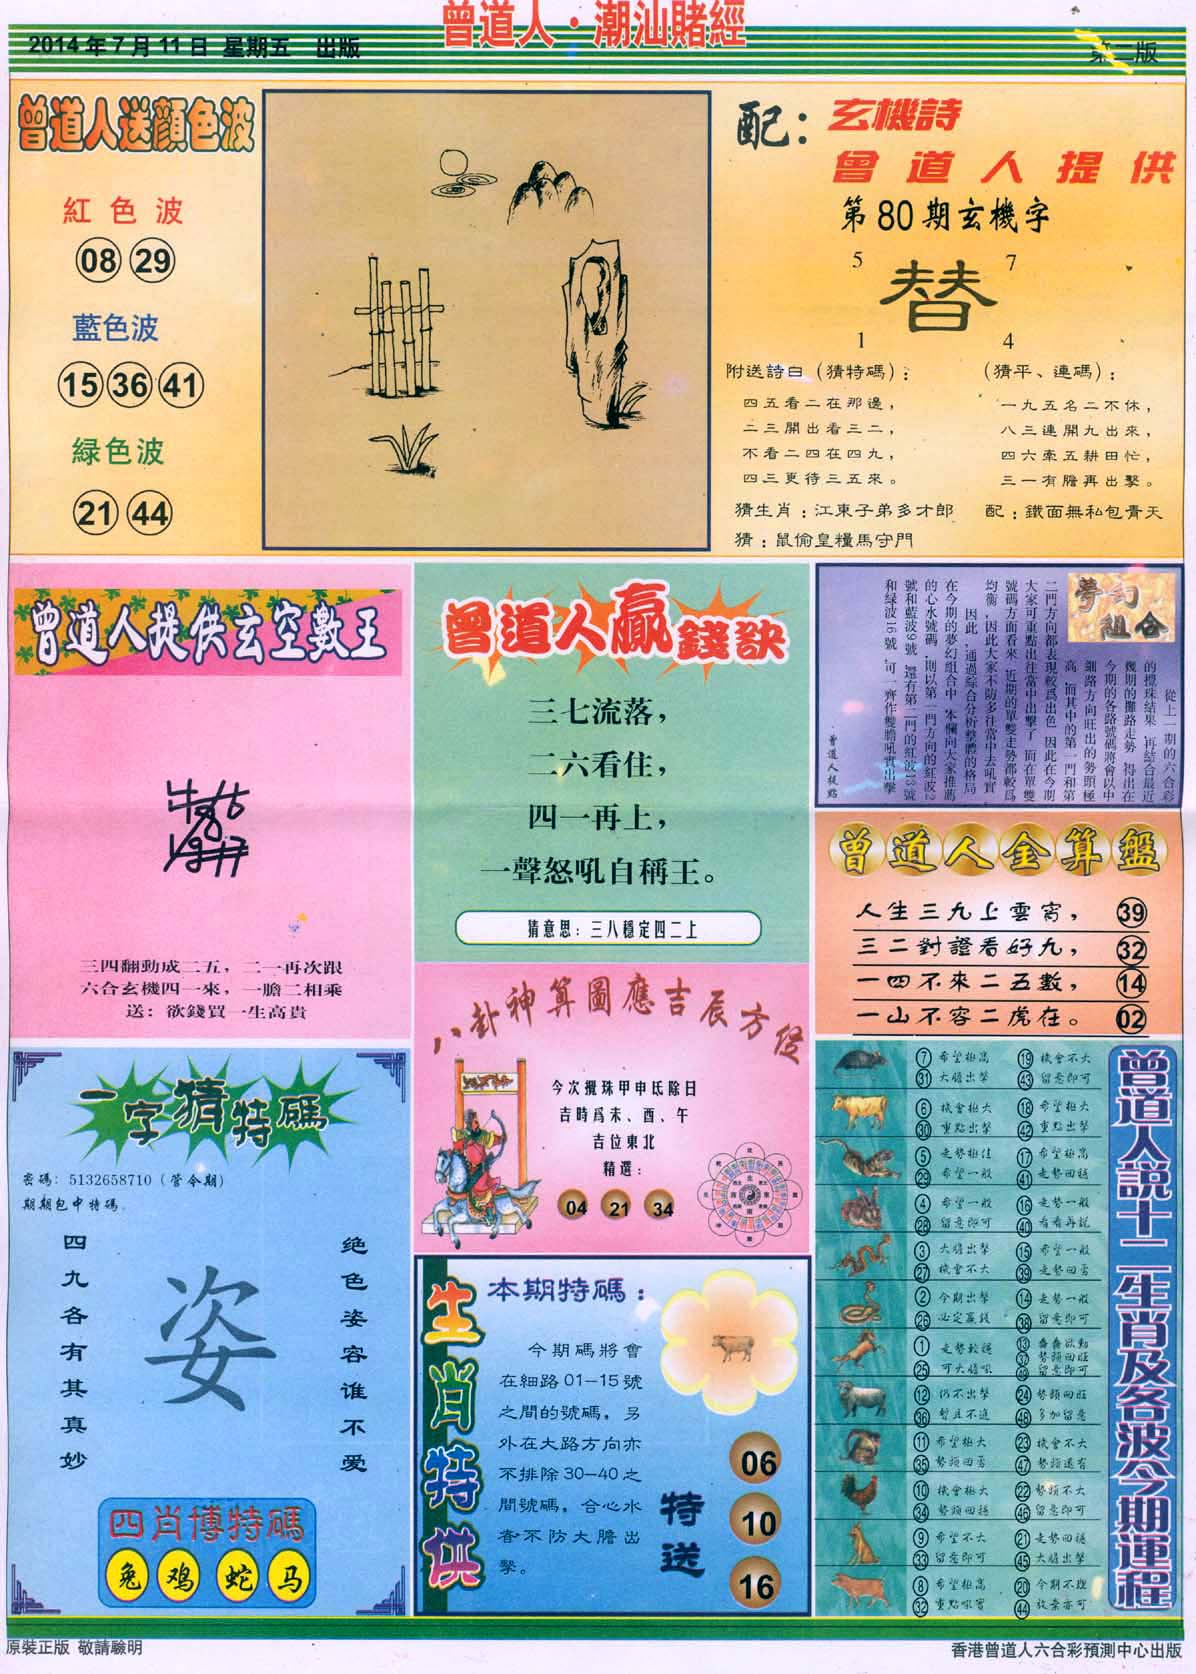 曾道人·潮汕賭經
2014年7月11日 星期五 出版
第二版
曾道人送顔色波
紅色波
08 29
藍色波
15 36 41
緑色波
21 44
配：
玄機詩
曾道人提供
第80期玄機字
5 7
替
1 4
附送詩白（猜特碼）：
四五看二在那邊，
二三開出看三二，
不看二四在四九，
四三更待三五來。
（猜平、連碼）：
一九五名二不休，
八三連開九出來，
四六牽五耕田忙，
三一有膽再出擊。
猜生肖：江東子弟多才郎
配：鐵面無私包青天
猜：鼠偷皇糧馬守門
曾道人提供玄空數王
三四翻動成二五，二一再次跟
六合玄機四一來，一膽二相乘
送：欲錢買一生高貴
曾道人贏錢訣
三七流落，
二六看住，
四一再上，
一聲怒吼自稱王。
猜意思：三八穩定四二上
夢幻
組合
從上一期的六合彩
的攪珠結果，再結合最近
幾期的攤路走勢，得出在
今期的各路號碼將會以中
細路方向旺出的勢頭極
高，而其中的第一門和第
二門方向都表現較爲出色，因此在今期
大家可重點出注當中出擊了，而在單雙
號碼方面看來，近期的單雙走勢都較爲
均衡，因此大家不防多注當中去吼實
因此，通過綜合分析整體的格局，
在今期的夢幻組合中，本欄向大家推薦
的心水號碼，則以第一門方向的紅波2
號和藍波9號，還有第二門的紅波13號
和緑波16號，可一齊作雙膽吼實出擊
曾道人校點
曾道人金算盤
人生三九上雲宵， 39
三二對證看好九， 32
一四不來二五數， 14
一山不容二虎在。 02
一字猜特碼
密碼：5132658710（營令期）
期期包中特碼
四九各有其真妙
姿
绝色姿容谁不爱
四肖博特碼
兔 鸡 蛇 马
八卦神算圖應吉辰方位
今次攪珠甲申氐除日
吉時爲未、酉、午
吉位東北
精選：
04 21 34
生肖特供
本期特碼：
今期碼將會
在細路01—15號
之間的號碼，另
外在大路方向亦
不排除30—40之
間號碼，合心水
者不防大膽出
擊。
特送
06
10
16
曾道人説十二生肖及各波今期運程
7 希望極高 19 機會不大
31 大膽出擊 43 留意即可
6 機會極大 18 希望極大
30 重點出擊 42 重點出擊
5 走勢極佳 17 希望極高
29 希望一般 41 走勢回穩
4 希望一般 16 走勢一般
28 留意即可 40 看看再説
3 大膽出擊 15 希望一般
27 機會不大 39 走勢回勇
2 今期出擊 14 走勢一般
26 必定贏錢 38 留意即可
1 走勢較穩 13 蠢蠢欲動
25 可大膽吼 37 勢頭回旺
49 留意即可
12 仍不出擊 24 勢頭回旺
36 暫且不進 48 多加留意
11 希望極大 23 機會不大
35 勢頭回勇 47 勢頭還有
10 機會極大 22 勢頭不大
34 勢頭回穩 46 留意即可
9 希望不大 21 走勢回穩
33 留意即可 45 大膽出擊
8 希望極高 20 今期不理
32 重點吼實 44 放棄亦可
原裝正版 敬請驗明
香港曾道人六合彩預測中心出版